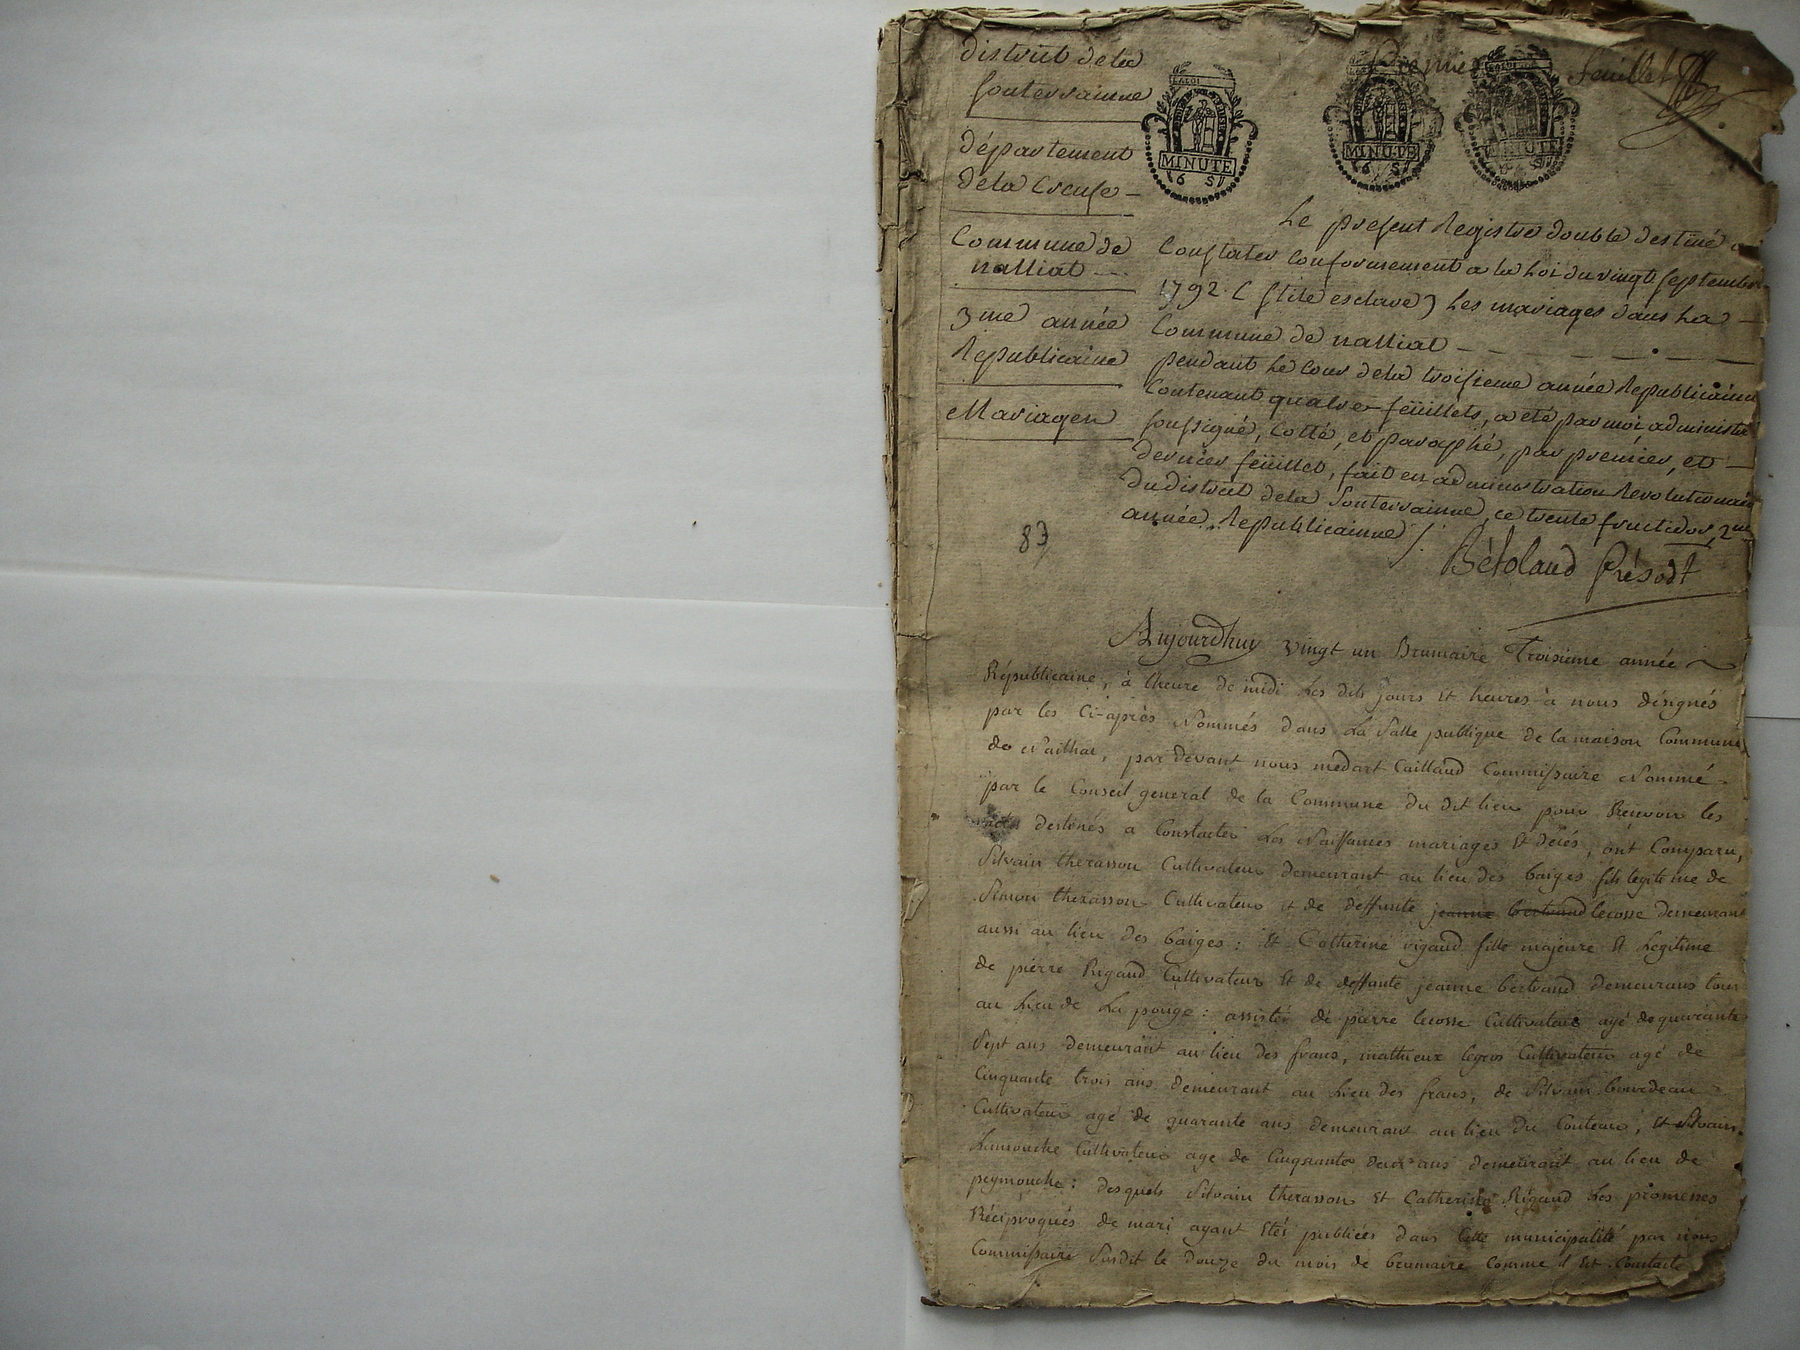 Premier feuillet
district de la
souterrainne
département
de la Creuse
Commune de
nalliat
3me année
Republicaine
Mariages
83
LA LOI
MINUTE
6 S
LA LOI
MINUTE
6 S
MINUTE
Le present Registre double destiné a
Constater Conformement a la Loi du vingt septembre
1792. ( stile esclave ) les mariages dans La
Commune de nalliat
pendant Le Cour de la troisieme année Republicaine
Contenant quatre feüillets, a eté par moi administr
soussigné, Cotté, et paraphé, par premier, et
dernier feüillet, fait en administration Revolutionaire
du district de la Souterrainne, ce trente fructidor, 2me
année Republicainne /.
Bétoland Présdt
Aujourdhuy vingt un Brumaire Troisieme année
Républicaine, à l'heure de midi Les dits jours et heures à nous désignés
par les Ci-après Nommés dans La Salle publique de la maison Commune
de Nailhat, par devant nous medart Caillaud Commissaire Nommé
par le Conseil general de la Commune du dit lieu pour Recevoir les
actes destinés a Constater Les Naissances mariages Et décés, ont Comparu,
Silvain therasson Cultivateur demeurant au lieu des baiges fils legitime de
Simon therasson Cultivateur et de deffunte jeanne bertrand lecosse demeurant
aussi au lieu des baiges : Et Catherine rigaud fille majeure Et Legitime
de pierre Rigaud Cultivateur Et de deffunte jeanne bertrand demeurans tous
au Lieu de La pouge : assistés de pierre lecosse Cultivateur agé de quarante
Sept ans demeurant au lieu des frans, mathieux legros Cultivateur agé de
Cinquante trois ans demeurant au Lieu des frans, de Silvain bourdeau
Cultivateur agé de quarante ans demeurant au lieu du Couteau, Et Silvain
Lamouche Cultivateur age de Cinquante deux ans demeurant au lieu de
peymouche : desquels Silvain therasson Et Catherine Rigaud Les promesses
Réciproques de mari ayant Etés publiées dans Cette municipalité par nous
Commissaire Susdit le douze du mois de brumaire Comme il Est Constaté